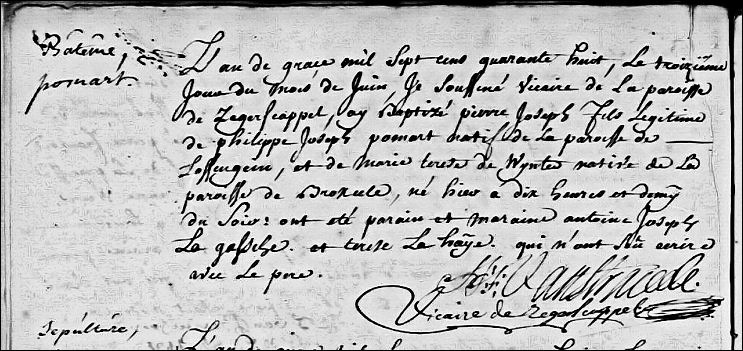 Bâtême,
pomart.
L'an de grace mil sept cens quarante huit, Le troiziême
Jour du mois de Juin, Je Soussiné vicaire de La paroisse
de Zegerscappel, ay Baptizé pierre Joseph Fils Legitime
de philippe Joseph pomart natif de La paroisse de
et de marie terese de Wynter native de La
paroisse de Brokcule, né hier a dix heures et demy
du Soir: ont été parain et maraine antoine Joseph
La gassche. et terese La haÿe. qui n'ont sçû ecrire
avec Le pere.
Vicaire de Zegerscappel
Sepulture,
L'an de